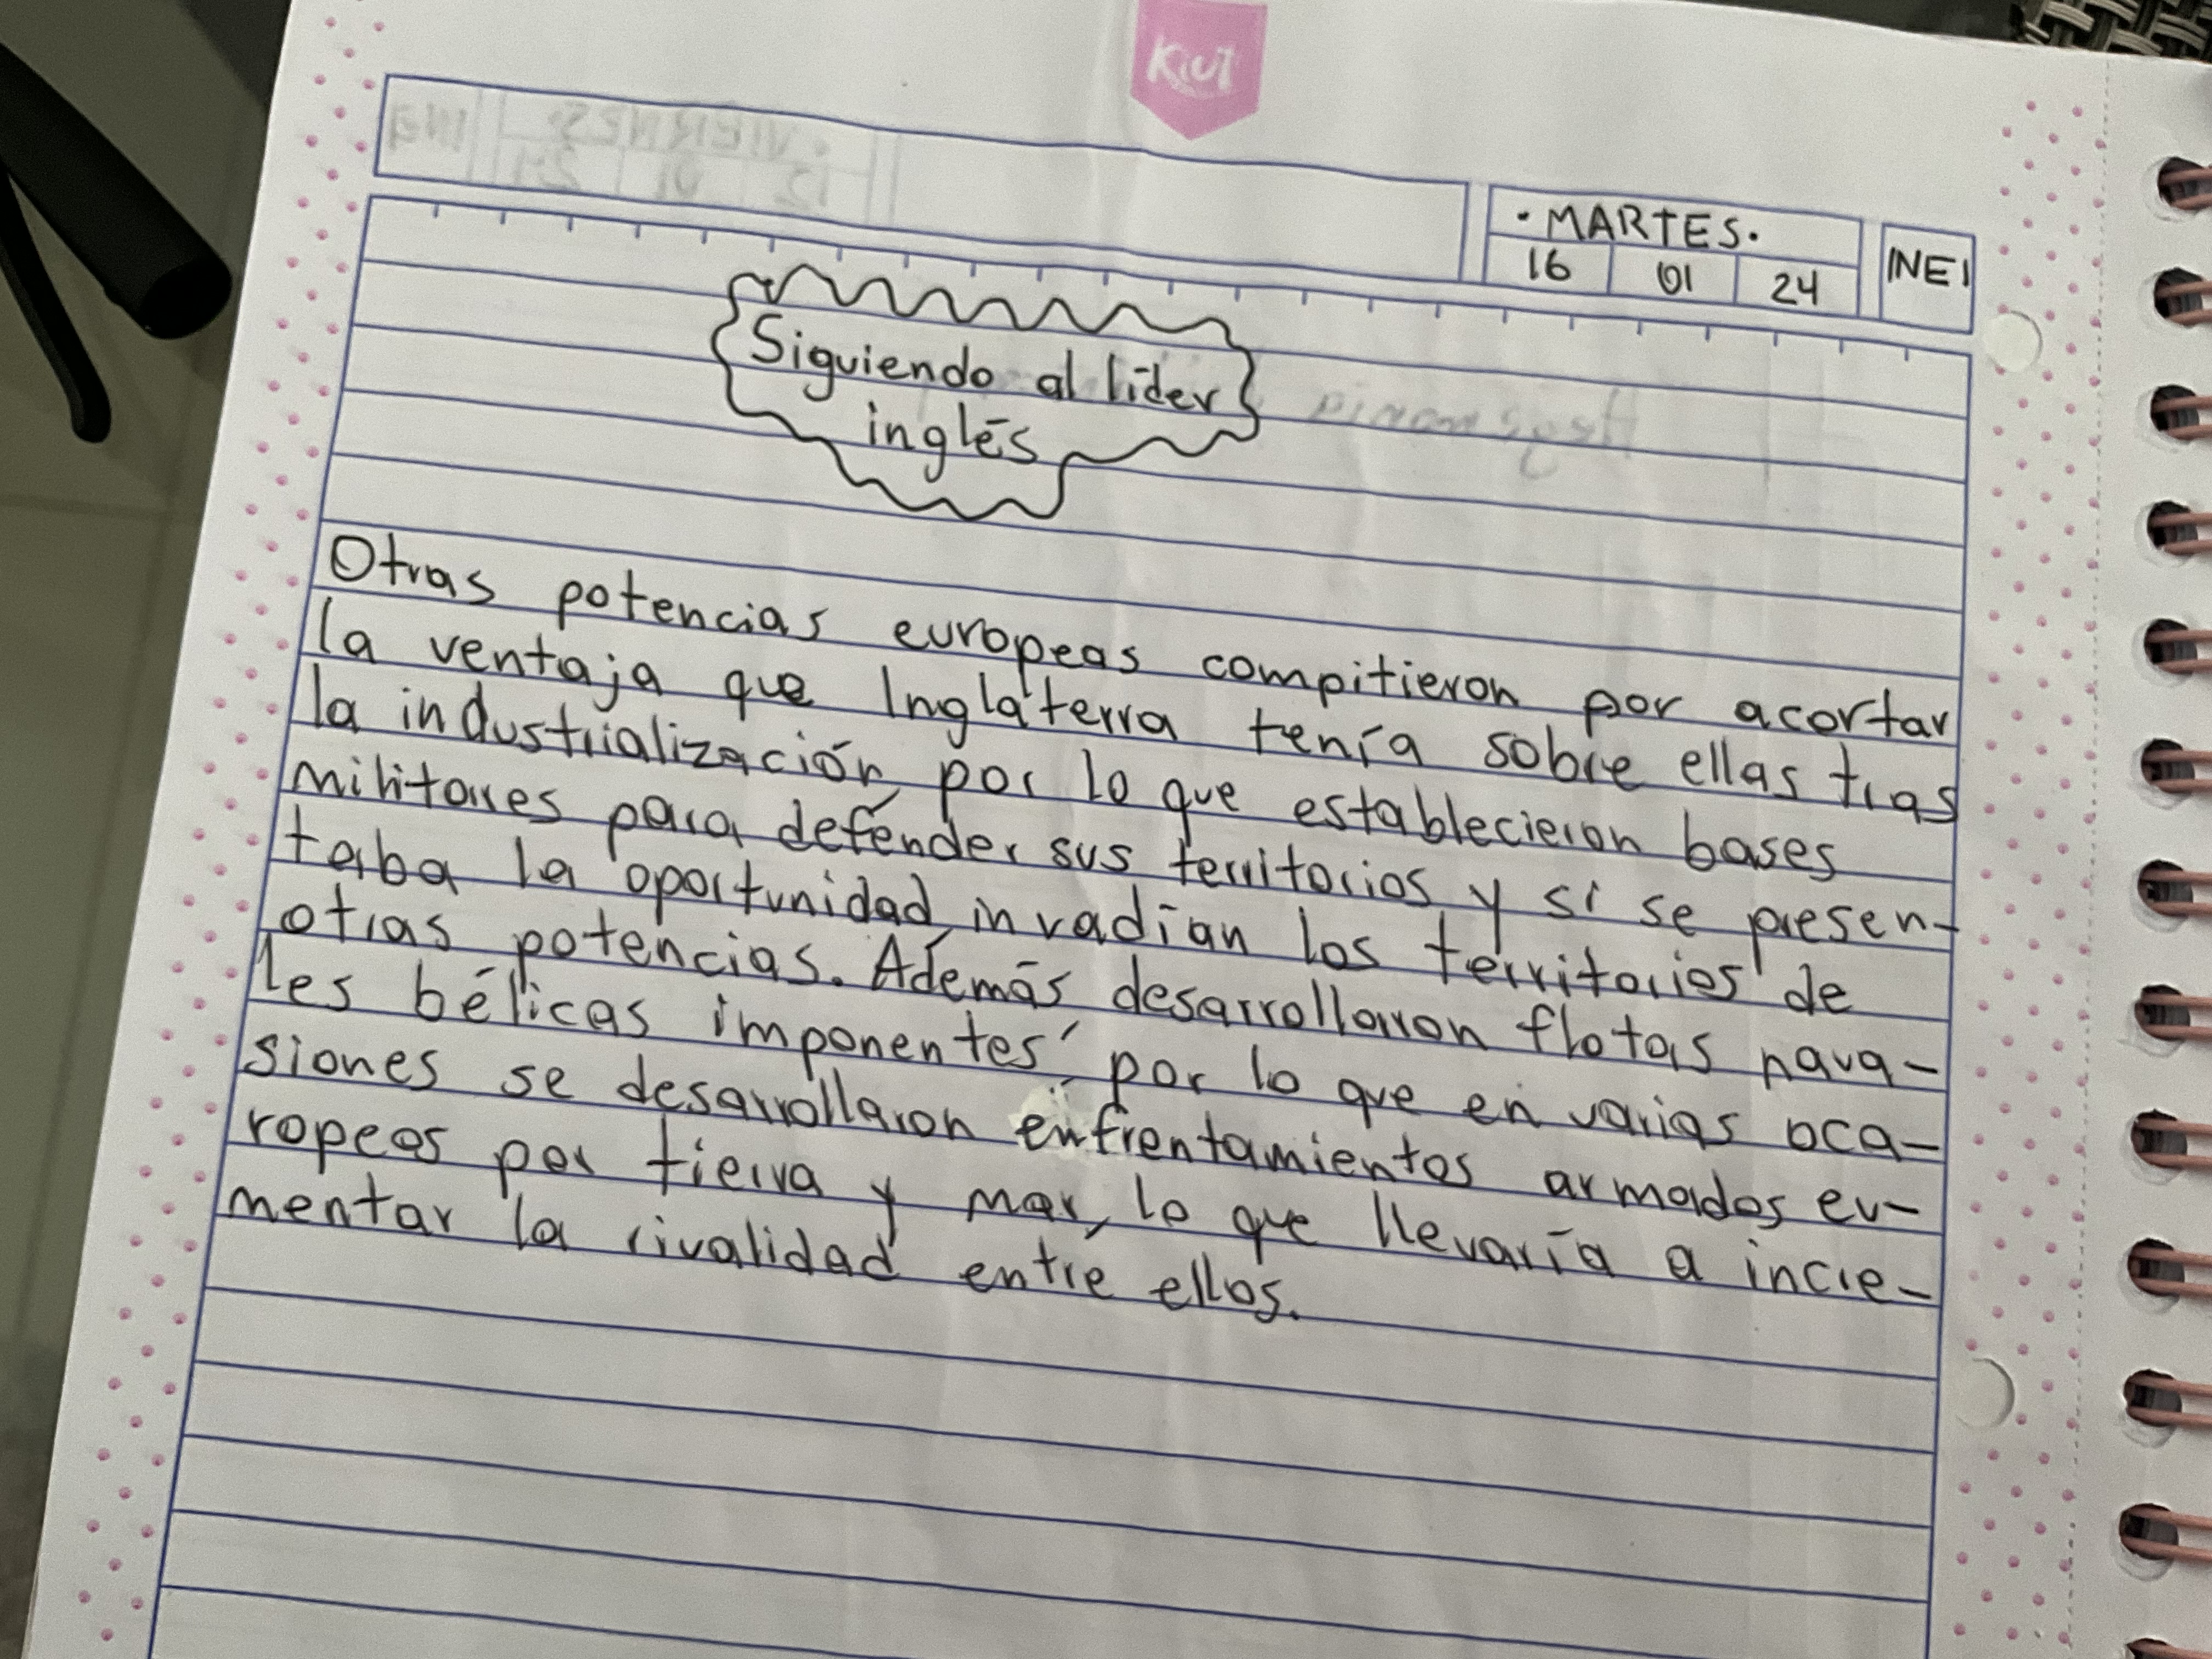 Kiut
• MARTES •
16 01 24
NE1
Siguiendo al líder
inglés
Otras potencias europeas compitieron por acortar
la ventaja que Inglaterra tenía sobre ellas tras
la industrialización, por lo que establecieron bases
militares para defender sus territorios y si se presen-
taba la oportunidad, invadían los territorios de
otras potencias. Además desarrollaron flotas nava-
les bélicas imponentes, por lo que en varias oca-
siones se desarrollaron enfrentamientos armados eu-
ropeos por tierra y mar, lo que llevaría a incre-
mentar la rivalidad entre ellos.